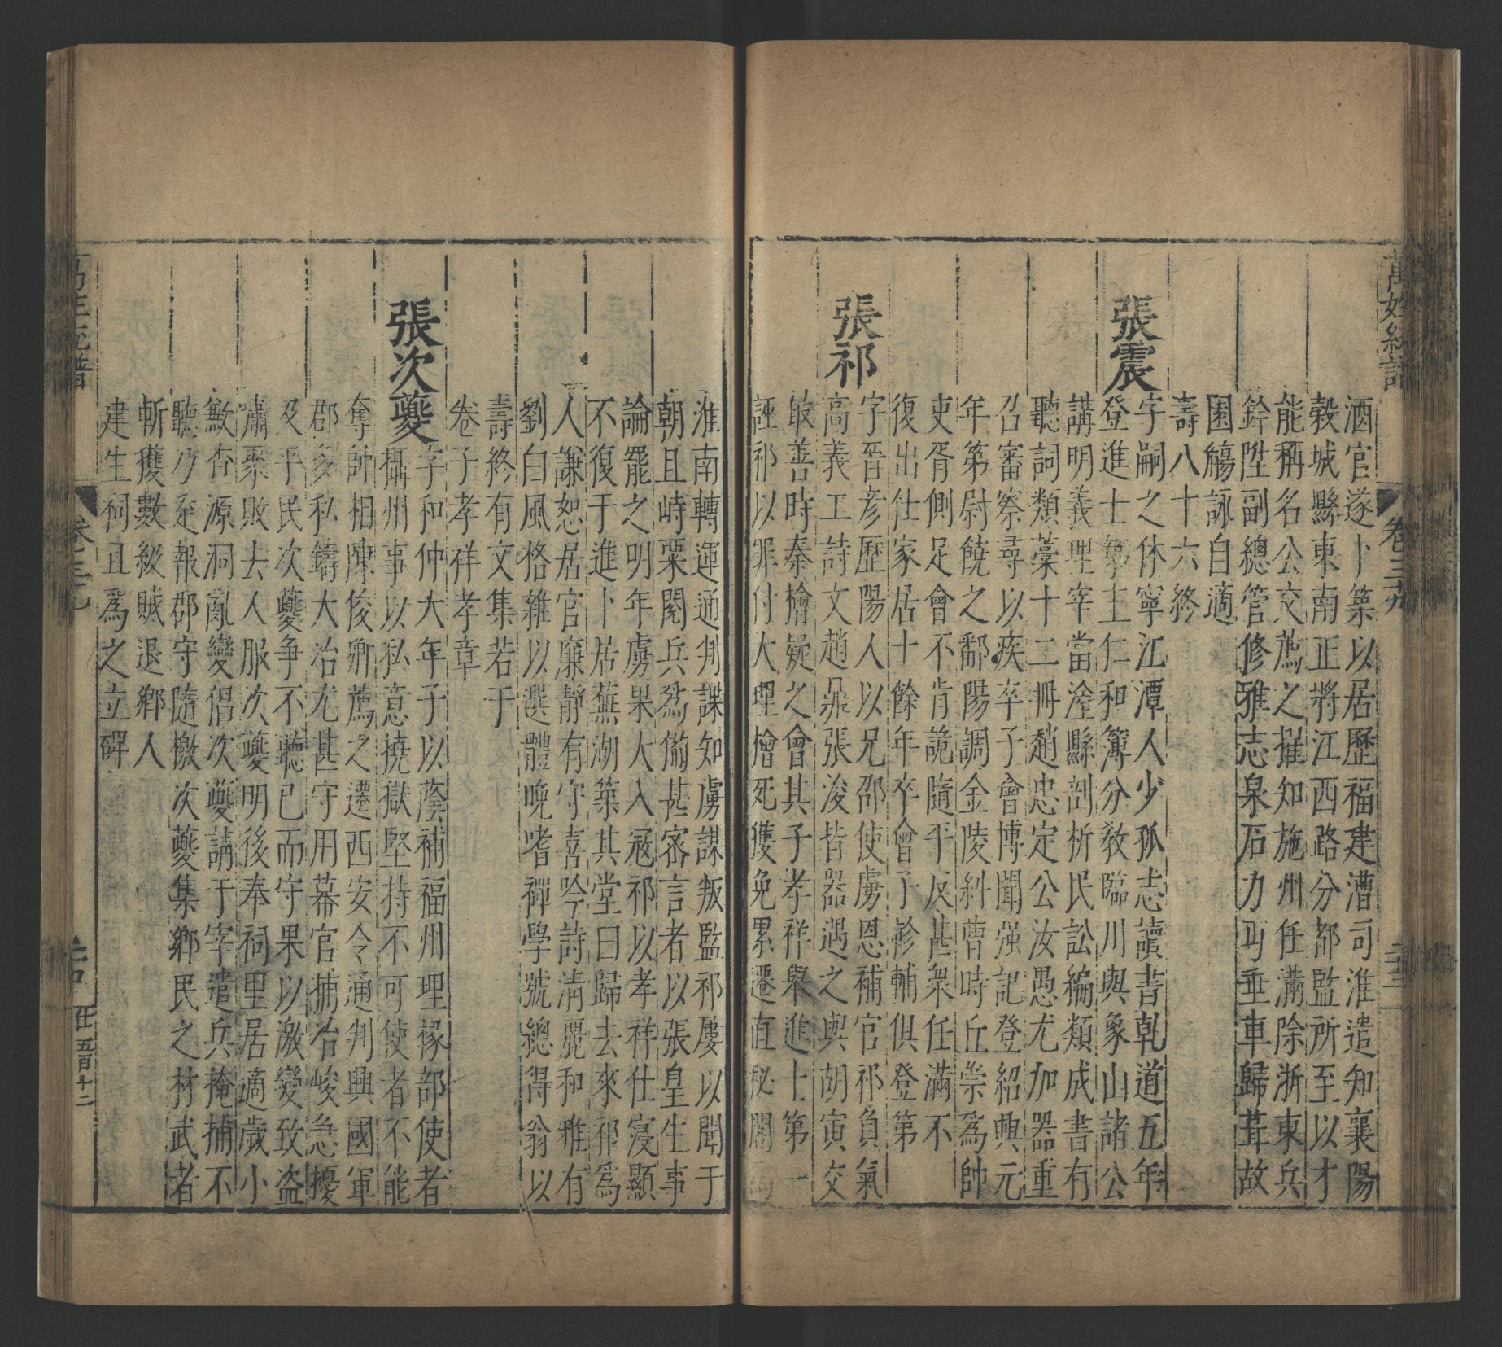 萬姓統譜 卷三九
酒官遂卜築以居歷福建漕司淮遣知襄陽
穀城縣東南正將江西路分都監所至以才
能稱名公交薦之擢知施州任滿除浙東兵
鈐陞副總管修雅志泉石力丐垂車歸葺故
園觴詠自適
壽八十六終
張震字嗣之休寧江潭人少孤志讀書乾道五年
登進士第主仁和簿分教臨川與象山諸公
講明義理宰當塗縣剖析民訟編類成書有
聽詞類藁十二冊趙忠定公汝愚尤加器重
召審察尋以疾卒子會博聞强記登紹興元
年第尉饒之鄱陽調金陵糾曹時丘崇為帥
吏胥側足會不肯詭隨平反甚衆任滿不
復出仕家居十餘年卒會子軫輔俱登第
張祁字晉彥歷陽人以兄邵使虜恩補官祁負氣
高義工詩文趙鼎張浚皆器遇之與胡寅交
最善時秦檜疑之會其子孝祥舉進士第一
誣祁以罪付大理檜死獲免累遷直秘閣
淮南轉運通判諜知虜謀叛監祁屢以聞于
朝且峙粟閱兵為備甚審言者以張皇生事
論罷之明年虜果大入寇祁以孝祥仕寖顯
不復于進卜居蕪湖築其堂曰歸去來祁為
人謙恕居官廉靜有守喜吟詩清麗和雅有
劉白風格雜以選體晚嗜禪學號總得翁以
壽終有文集若干
卷子孝祥孝章
張次夔字和仲大年子以蔭補福州理掾部使者
攝州事以私意撓獄堅持不可使者不能
奪帥相陳俊卿薦之遷西安令通判興國軍
郡多私鑄大冶尤甚守用幕官捕治峻急擾
及平民次夔争不聽已而守果以激變致盜
嘯聚敗去人服次夔明後奉祠里居適歲小
歉杏源洞亂變倡次夔請于宰遣兵掩捕不
聽少迳報郡守隨檄次夔集鄉民之材武者
斬獲數級賊退鄉人
建生祠且為之立碑
卷三九